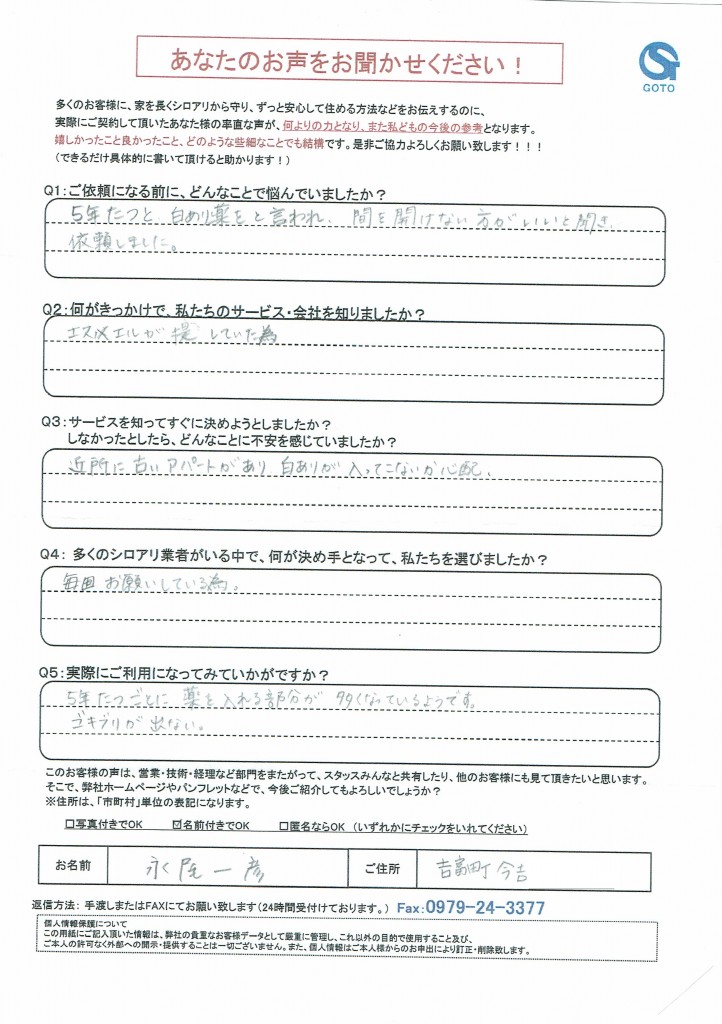 あなたのお声をお聞かせください！
GOTO
多くのお客様に、家を長くシロアリから守り、ずっと安心して住める方法などをお伝えするのに、
実際にご契約して頂いたあなた様の率直な声が、何よりの力となり、また私どもの今後の参考となります。
嬉しかったこと良かったこと、どのような些細なことでも結構です。是非ご協力よろしくお願い致します！！！
（できるだけ具体的に書いて頂けると助かります！）
Q1：ご依頼になる前に、どんなことで悩んでいましたか？
5年たつと、白あり薬をと言われ、間を開けない方がいいと聞き、
依頼しました。
Q2：何がきっかけで、私たちのサービス・会社を知りましたか？
エスメエルが していた為
Q3：サービスを知ってすぐに決めようとしましたか？
しなかったとしたら、どんなことに不安を感じていましたか？
近所に古いアパートがあり、白ありが入ってこないか心配、
Q4： 多くのシロアリ業者がいる中で、何が決め手となって、私たちを選びましたか？
毎回お願いしている為。
Q5：実際にご利用になってみていかがですか？
5年たつごとに 薬を入れる部分が 多くなっているようです。
ゴキブリが出ない。
このお客様の声は、営業・技術・経理など部門をまたがって、スタッスみんなと共有したり、他のお客様にも見て頂きたいと思います。
そこで、弊社ホームページやパンフレットなどで、今後ご紹介してもよろしいでしょうか？
※住所は、「市町村」単位の表記になります。
☐写真付きでOK ☑名前付きでOK ☐匿名ならOK （いずれかにチェックをいれてください）
お名前 永尾 一彦 ご住所 吉富町 今吉
返信方法： 手渡しまたはFAXにてお願い致します（24時間受付けております。） Fax：0979-24-3377
個人情報保護について
この用紙にご記入頂いた情報は、弊社の貴重なお客様データとして厳重に管理し、これ以外の目的で使用すること及び、
ご本人の許可なく外部への開示・提供することは一切ございません。また、個人情報はご本人様からのお申出により訂正・削除致します。